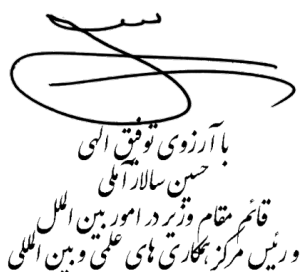 با آرزوی توفیق الهی
حسین سالار آملی
قائم مقام وزیر در امور بین الملل
و رئیس مرکز همکاری های علمی و بین المللی